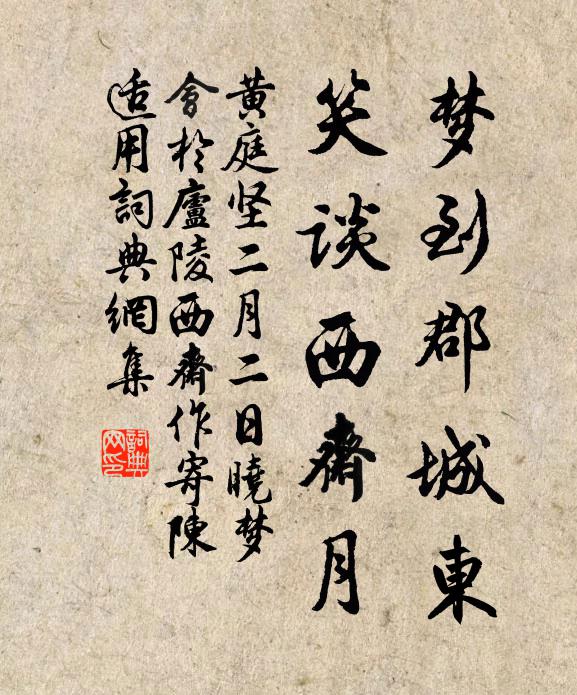 梦到郡城東
笑谈西齋月
黄庭坚二月二日曉梦
會於廬陵西齋作寄陳
适用詞典網集
詞典网印